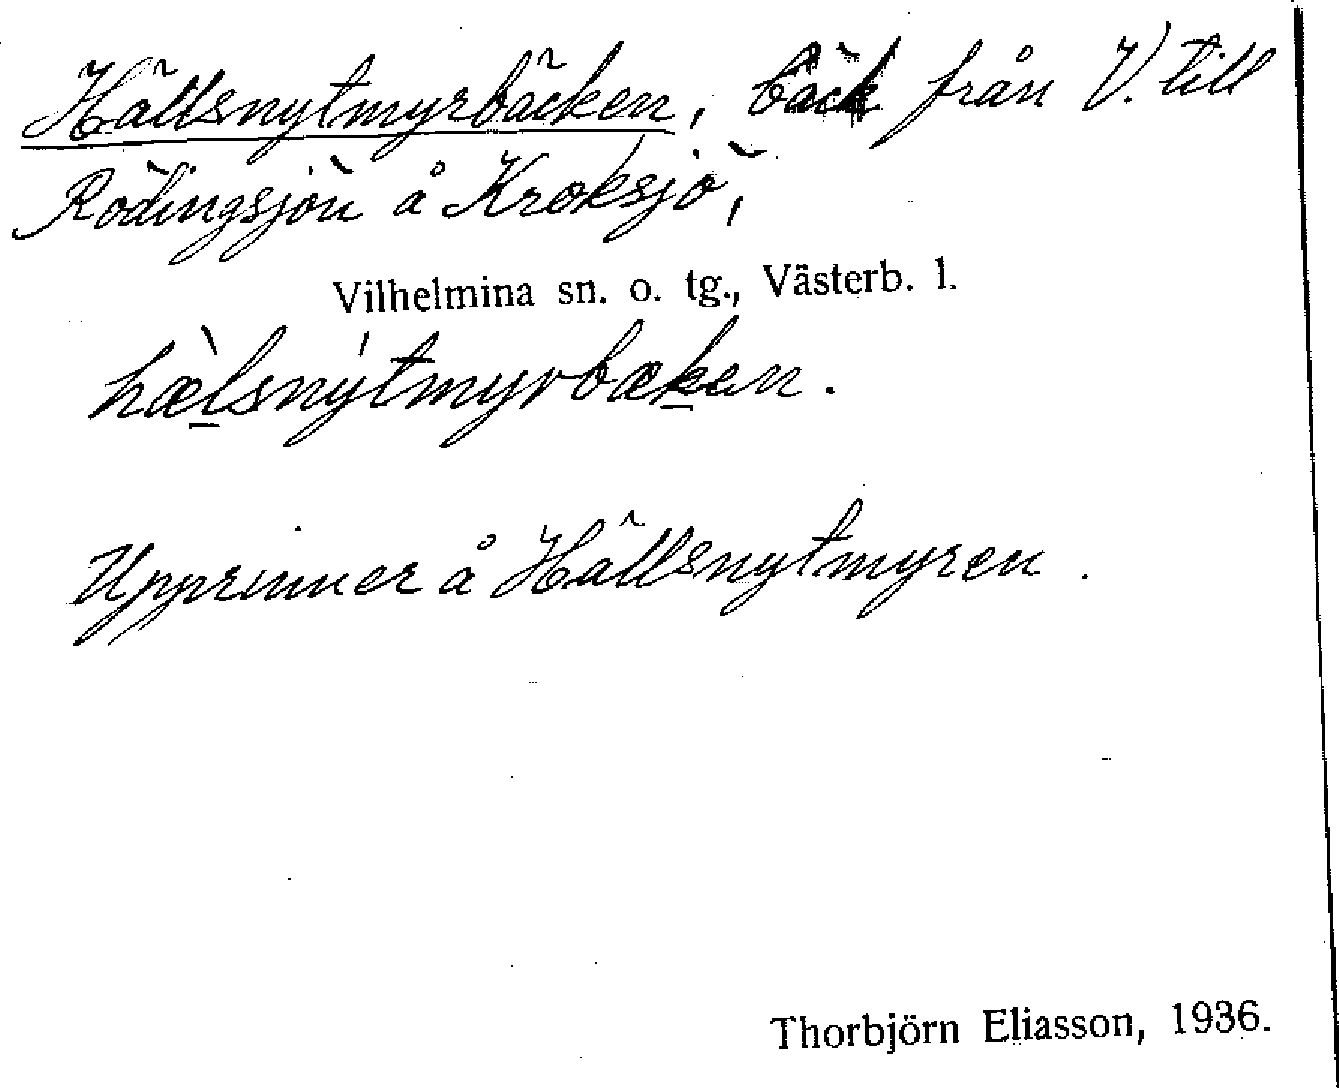 Hällsnytmyrbäcken, bäck från V. till
Rödingsjön å Kroksjö,
Vilhelmina sn. o. tg., Västerb. l.
hæ̀lsnýtmyrbæken.
Upprinner å Hällsnytmyren.
Thorbjörn Eliasson, 1936.